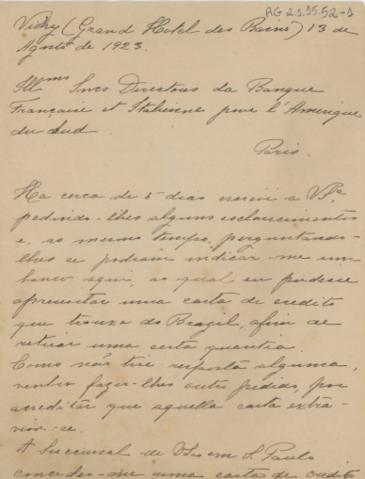 AG 21.15.52-1
Vichy (Grand Hotel des Bains) 13 de
Agosto de 1923.
Illmos Snrs Directores da Banque
Française et Italienne pour l'Amerique
du Sud
Paris.
Ha cerca de 5 dias escrevi a VSas
pedindo-lhes alguns esclarecimentos
e, ao mesmo tempo, perguntando-
lhes se podiam indicar-me um
banco aqui, ao qual eu pudesse
apresentar uma carta de credito
que trouxe do Brazil, afim de
retirar uma certa quantia.
Como não tive resposta alguma,
venho fazer-lhes outro pedido, por
acreditar que aquella carta extra-
viou-se.
A Succursal de em S. Paulo
concedeu-me uma carta de credito